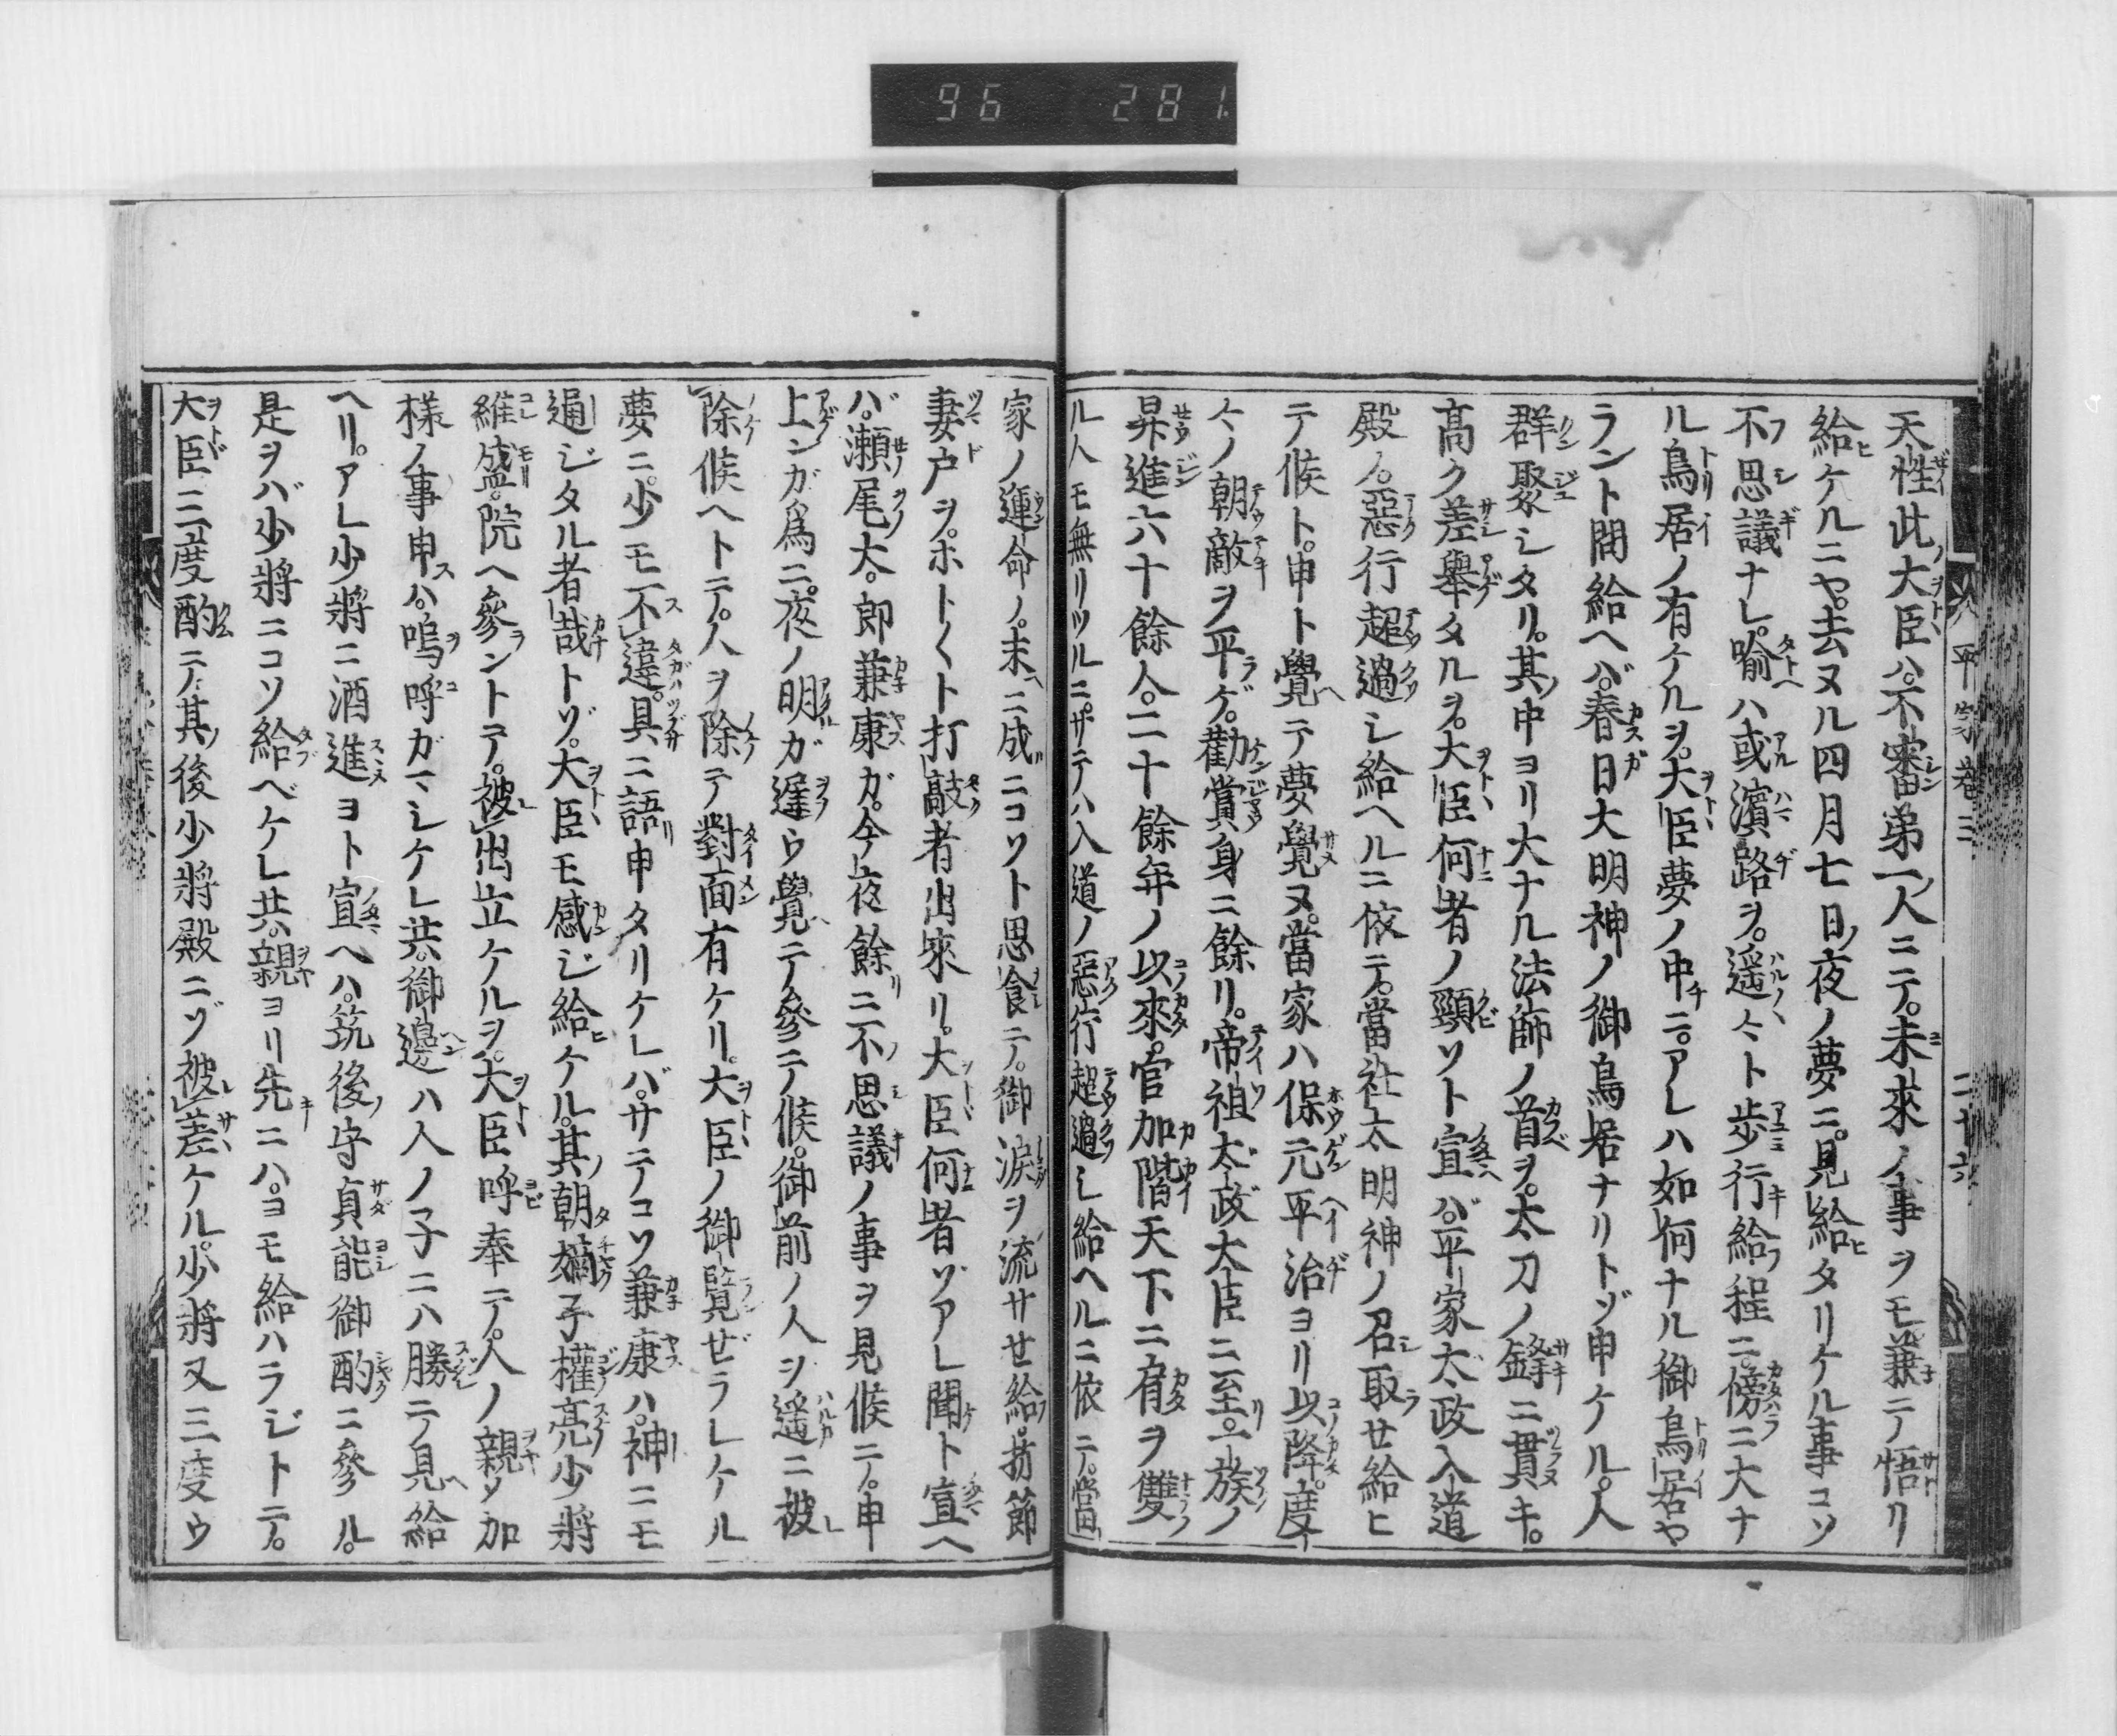 96 281
平家巻三 二十六
天性此大臣ハ。不審第一人ニテ。未來ノ事ヲモ兼テ悟リ
給ケルニヤ。去ヌル四月七日ノ夜ノ夢ニ。見給タリケル事コソ
不思議ナレ。喩ハ或濱路ヲ。遥々ト歩行給フ程ニ。傍ニ大ナ
ル鳥居ノ有ケルヲ。大臣夢ノ中ニ。アレハ如何ナル御鳥居ヤ
ラント問給ヘバ。春日大明神ノ御鳥居ナリトゾ申ケル。人
群聚シタリ。其中ヨリ大ナル法師ノ首ヲ。太刀ノ鋒ニ貫キ。
髙ク差舉タルヲ。大臣何者ノ頸ソト宣ヘバ。平家太政入道
殿ノ。惡行超過シ給ヘルニ依テ。當社太明神ノ召取せ給ヒ
テ候ト。申ト覺テ夢覺ヌ。當家ハ保元平治ヨリ以降。度
々ノ朝敵ヲ平ゲ。勸賞身ニ餘リ。帝祖太政大臣ニ至リ。一族ノ
昇進六十餘人。二十餘年ノ以來。官加階天下ニ肩ヲ雙
ル人モ無リツルニ。サテハ入道ノ惡行超過シ給ヘルニ依テ。當
家ノ運命ノ。末ニ成ニコソト思食テ。御涙ヲ流サせ給フ。折節
妻戸ヲ。ホト〱ト打敲者出來リ。大臣何者ゾアレ聞ト宣ヘ
バ。瀬尾大。郎兼康ガ。今夜餘リニ不思議ノ事ヲ見候テ。申
上ンガ為ニ。夜ノ明ガ遅ウ覺テ參テ候。御前ノ人ヲ遥ニ被
除候ヘトテ。人ヲ除テ對面有ケリ。大臣ノ御覧ぜラレケル
夢ニ。少モ不違。具ニ語リ申タリケレバ。サテコソ兼康ハ。神ニモ
通ジタル者哉トゾ。大臣モ感ジ給ケル。其朝嫡子權亮少將
維盛。院ヘ參ントテ。被出立ケルヲ。大臣呼奉テ。人ノ親ノ加
様ノ事申スハ。嗚呼ガマシケレ共。御邊ハ人ノ子ニハ勝テ見ヘ給
ヘリ。アレ少將ニ酒進ヨト宣ヘハ。筑後ノ守貞能御酌ニ參ル。
是ヲバ少將ニコソ給ベケレ共。親ヨリ先ニハ。ヨモ給ハラジトテ。
大臣三度酌テ。其後少將殿ニゾ被差ケル。少將又三度ウ